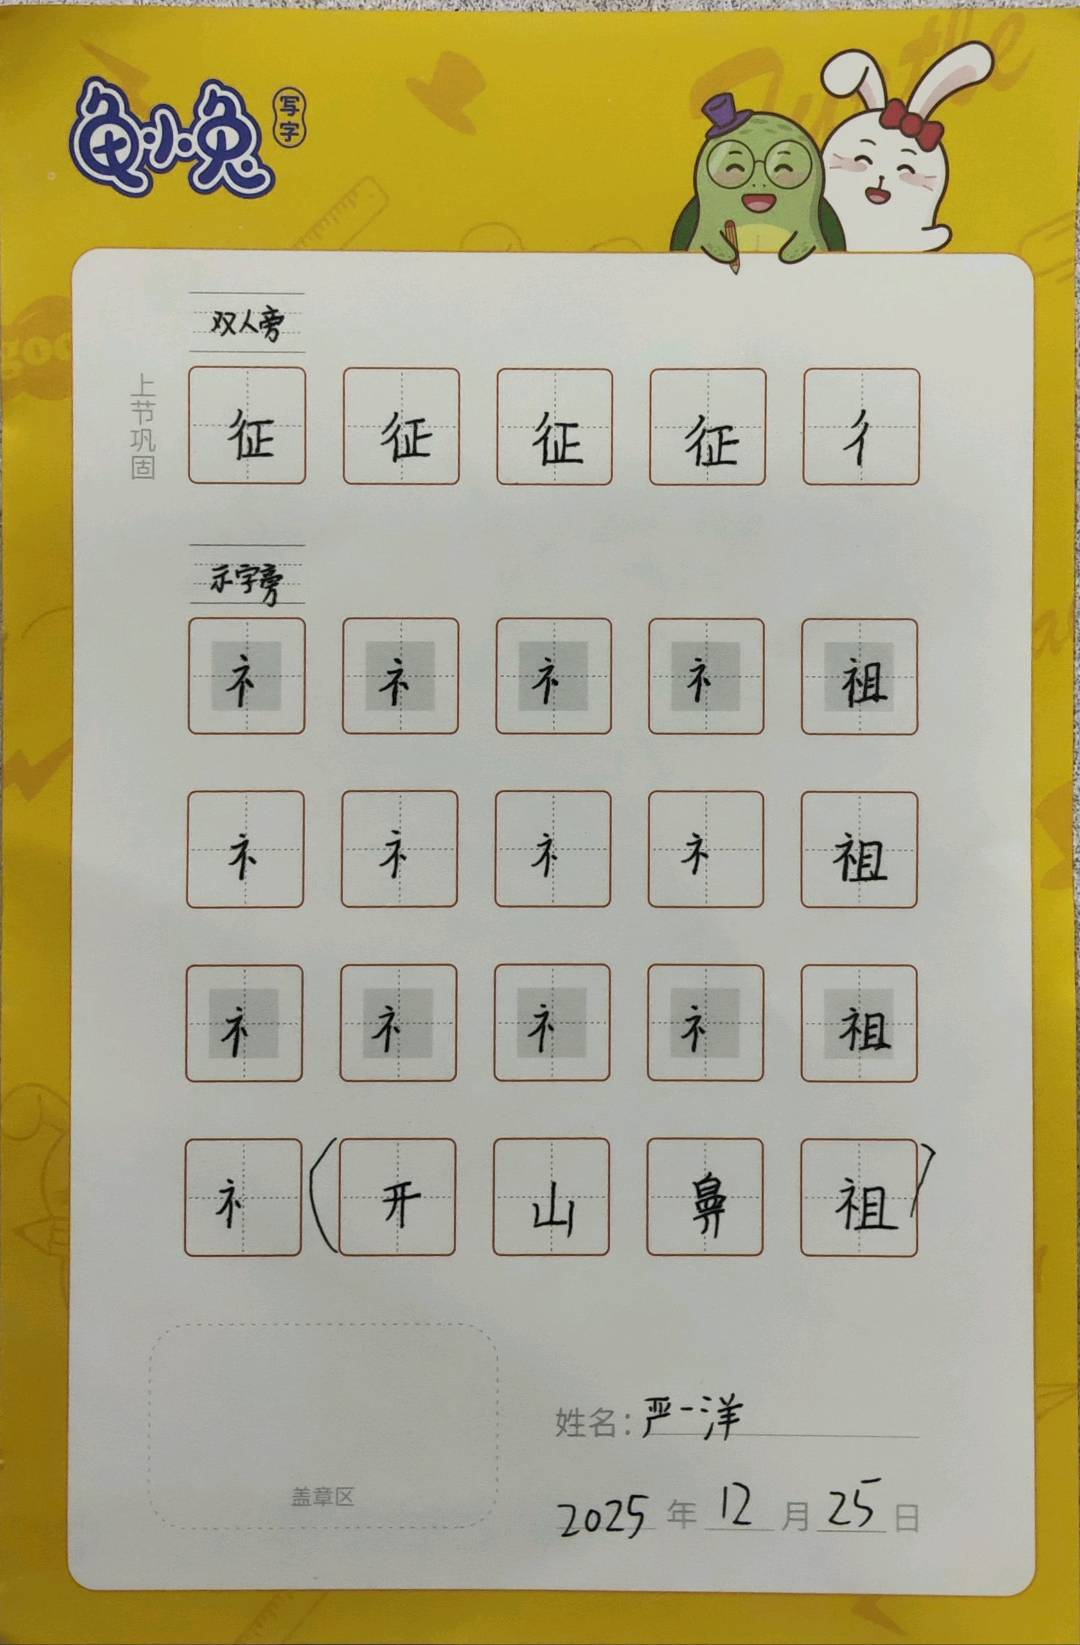 龟小兔 写字
双人旁
上节巩固
征 征 征 征 彳
示字旁
礻 礻 礻 礻 祖
礻 礻 礻 礻 祖
礻 礻 礻 礻 祖
礻 (开 山 鼻 祖)
姓名:严一洋
盖章区
2025 年 12 月 25 日